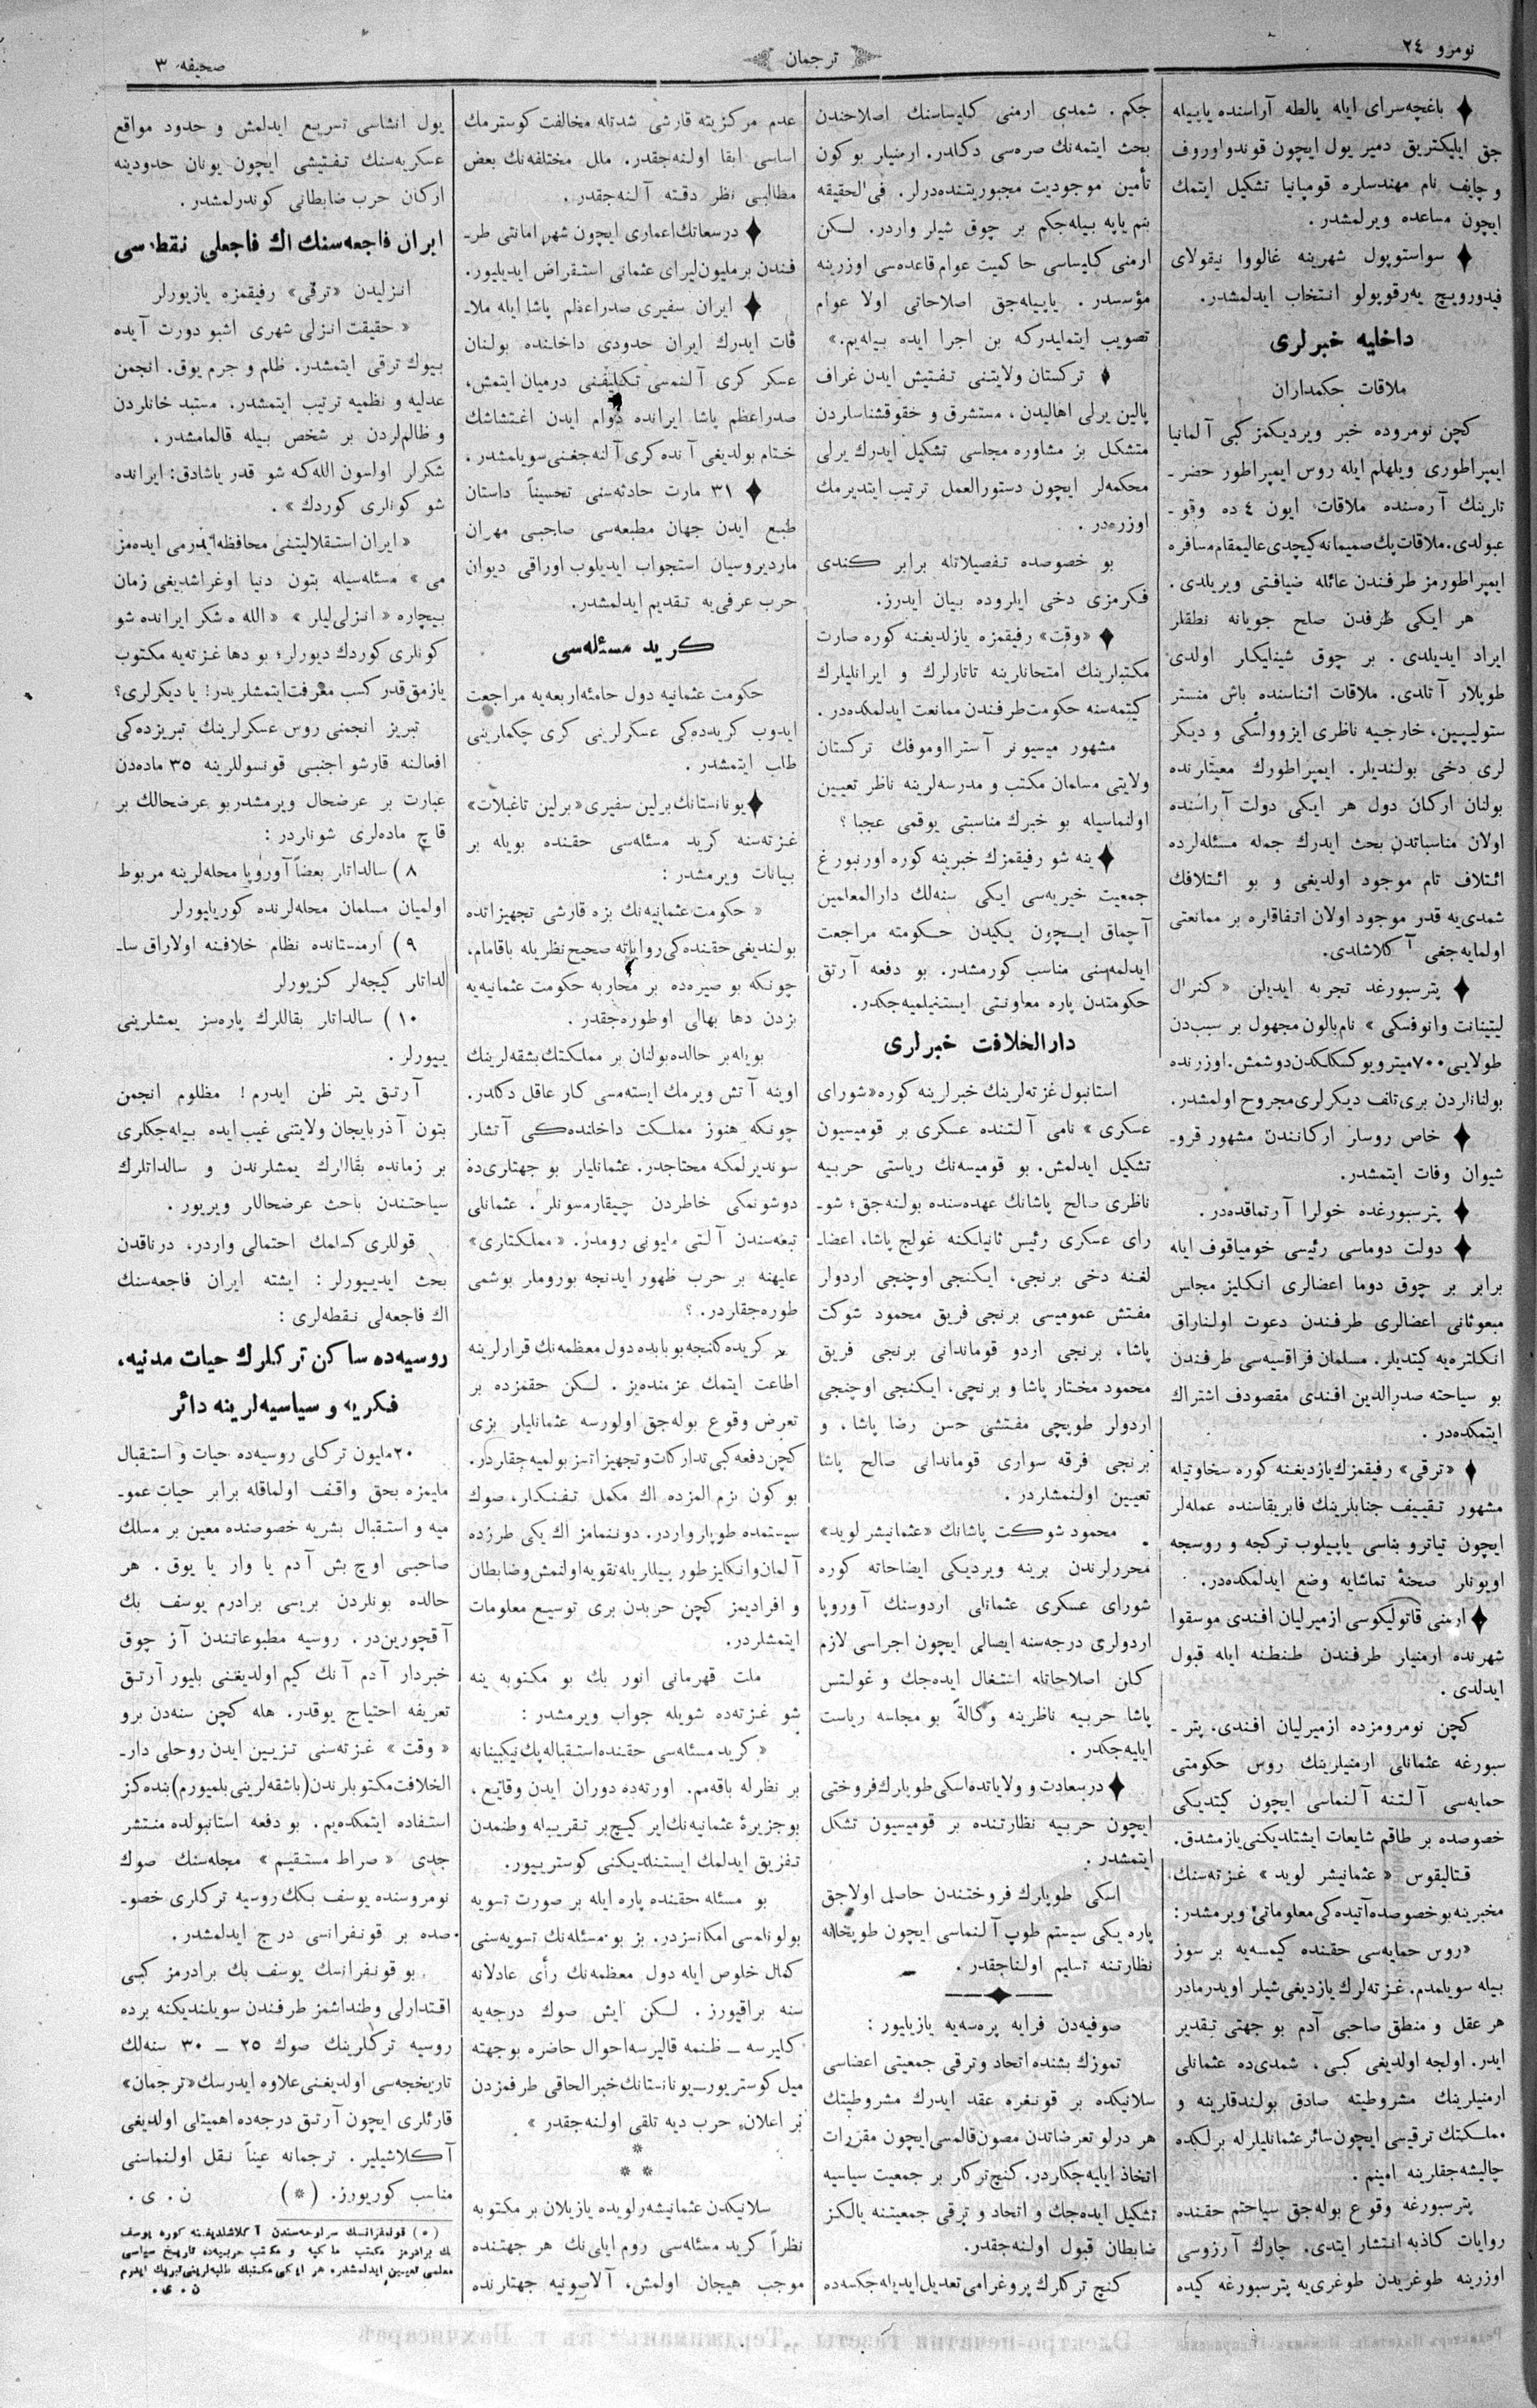 نومرو ٢٤
ترجمان
صحیفه ٣
باغچه‌سرای ایله یالطه آراسنده یاپیله
جق ایلیکتریق دمیر یول ایچون قوندواوروف
و چایف نام مهندسلره قومپانیا تشکیل ایتمك
ایچون مساعده ویرلمشدر.
سواستوپول شهرینه غالووا نیقولای
فیدورویچ یه‌رقوپولو انتخاب ایدلمشدر.
داخلیه خبرلری
ملاقات حکمداران
کچن نومروده خبر ویردیکمز کبی آلمانیا
ایمپراطوری ویلهلم ایله روس ایمپراطور حضر ـ
تارینك آره‌سنده ملاقات ایون ٤ ده وقو ـ
عبولدی. ملاقات پك صمیمانه کیچدی عالیمقام مسافره
ایمپراطورمز طرفندن عائله ضیافتی ویریلدی.
هر ایکی طرفدن صلح جویانه نطقلر
ایراد ایدیلدی. بر چوق شینلیکلر اولدی
طوپلار آتلدی. ملاقات اثناسنده باش منستر
ستولیپین، خارجیه ناظری ایزوولسکی و دیکر
لری دخی بولندیلر. ایمپراطورك معیتلرنده
بولنان ارکان دول هر ایکی دولت آراسنده
اولان مناسباتدن بحث ایدرك جمله مسئله‌لرده
ائتلاف تام موجود اولدیغی و بو ائتلافك
شمدی‌یه قدر موجود اولان اتفاقلره بر ممانعتی
اولمایه‌جغی آکلاشلدی.
پترسبورغد تجربه ایدیلن «کنرال
لیتینانت وانوفسکی» نام بالون مجهول بر سببدن
طولایی ٧٠٠ میترو یوکسکلکدن دوشمش. اوزرنده
بولنانلردن بری تلف دیکرلری مجروح اولمشدر.
خاص روسلر ارکانندن مشهور قرو ـ
شیوان وفات ایتمشدر.
پترسبورغده خولرا آرتماقده‌در.
دولت دوماسی رئیسی خومیاقوف ایله
برابر بر چوق دوما اعضالری انکلیز مجلس
مبعوثانی اعضالری طرفندن دعوت اولناراق
انکلتره‌یه کیتدیلر. مسلمان فراقسیه‌سی طرفندن
بو سیاحته صدرالدین افندی مقصودف اشتراك
ایتمکده‌در.
«ترقی» رفیقمزك یازدیغنه کوره سخاوتیله
مشهور تقییف جنابلرینك فابریقاسنده عمله‌لر
ایچون تیاترو بناسی یاپیلوب ترکجه و روسجه
اویونلر صحنهٔ تماشایه وضع ایدلمکده‌در.
ارمنی قاتولیکوسی ازمیرلیان افندی موسقوا
شهرنده ارمنیلر طرفندن طنطنه ایله قبول
ایدلدی.
کچن نومرومزده ازمیرلیان افندی، پتر ـ
سبورغه عثمانلی ارمنیلرینك روس حکومتی
حمایه‌سی آلتنه آلنماسی ایچون کیتدیکی
خصوصده بر طاقم شایعات ایشتلدیکنی یازمشدق.
قتالیقوس «عثمانیشر لوید» غزته‌سنك
مخبرینه بو خصوصده آتیده‌کی معلوماتی ویرمشدر:
«روس حمایه‌سی حقنده کیمسه‌یه بر سوز
بیله سویلمدم. غزته‌لرك یازدیغی شیلر اویدرمادر
هر عقل و منطق صاحبی آدم بو جهتی تقدیر
ایدر. اولجه اولدیغی کبی، شمدی‌ده عثمانلی
ارمنیلرینك مشروطیته صادق بولندقلرینه و
مملکتك ترقیسی ایچون سائر عثمانلیلرله برلکده
چالیشه‌جقلرینه امینم.
پترسبورغه وقوع بوله‌جق سیاحتم حقنده
روایات کاذبه انتشار ایتدی. چارك آرزوسی
اوزرینه طوغریدن طوغری‌یه پترسبورغه کیده
جکم. شمدی ارمنی کلیساسنك اصلاحندن
بحث ایتمه‌نك صره‌سی دکلدر. ارمنیلر بوکون
تأمین موجودیت مجبوریتنده‌درلر. فی‌الحقیقه
بنم یاپه بیله‌جکم بر چوق شیلر واردر. لکن
ارمنی کلیساسی حاکمیت عوام قاعده‌سی اوزرینه
مؤسسدر. یاپیله‌جق اصلاحاتی اولا عوام
تصویب ایتملیدرکه بن اجرا ایده بیله‌یم.»
ترکستان ولایتنی تفتیش ایدن غراف
پالین یرلی اهالیدن، مستشرق و حقوقشناسلردن
متشکل بر مشاوره مجلسی تشکیل ایدرك یرلی
محکمه‌لر ایچون دستورالعمل ترتیب ایتدیرمك
اوزره‌در.
بو خصوصده تفصیلاتله برابر کندی
فکرمزی دخی ایلروده بیان ایدرز.
«وقت» رفیقمزه یازلدیغنه کوره صارت
مکتبلرینك امتحانلرینه تاتارلرك و ایرانلیلرك
کیتمه‌سنه حکومت طرفندن ممانعت ایدلمکده‌در.
مشهور میسیونر آستراوموفك ترکستان
ولایتی مسلمان مکتب و مدرسه‌لرینه ناظر تعیین
اولنماسیله بو خبرك مناسبتی یوقمی عجبا؟
ینه شو رفیقمزك خبرینه کوره اورنبورغ
جمعیت خیریه‌سی ایکی سنه‌لك دارالمعلمین
آچماق ایچون یکیدن حکومته مراجعت
ایدلمه‌سنی مناسب کورمشدر. بو دفعه آرتق
حکومتدن پاره معاونتی ایستنیلمیه‌جکدر.
دارالخلافت خبرلری
استانبول غزته‌لرینك خبرلرینه کوره «شورای
عسکری» نامی آلتنده عسکری بر قومیسیون
تشکیل ایدلمش. بو قومیسه‌نك ریاستی حربیه
ناظری صالح پاشانك عهده‌سنده بولنه‌جق؛ شو ـ
رای عسکری رئیس ثانیلکنه غولچ پاشا، اعضا ـ
لغنه دخی برنجی، ایکنجی اوچنجی اردولر
مفتش عمومیسی برنجی فریق محمود شوکت
پاشا، برنجی اردو قوماندانی برنجی فریق
محمود مختار پاشا و برنجی، ایکنجی اوچنجی
اردولر طوپچی مفتشی حسن رضا پاشا، و
برنجی فرقه سواری قوماندانی صالح پاشا
تعیین اولنمشلردر.
محمود شوکت پاشانك «عثمانیشر لوید»
محررلرندن برینه ویردیکی ایضاحاته کوره
شورای عسکری عثمانلی اردوسنك آوروپا
اردولری درجه‌سنه ایصالی ایچون اجراسی لازم
کلن اصلاحاتله اشتغال ایده‌جك و غولتس
پاشا حربیه ناظرینه وکالةً بو مجلسه ریاست
ایلیه‌جکدر.
درسعادت و ولایاتده اسکی طوپلرك فروختی
ایچون حربیه نظارتنده بر قومیسیون تشکل
ایتمشدر.
اسکی طوپلرك فروختندن حاصل اولاجق
پاره یکی سیستم طوپ آلنماسی ایچون طوپخانه
نظارتنه تسلیم اولناجقدر.
صوفیه‌دن فرایه پره‌سه‌یه یازیلیور:
تموزك بشنده اتحاد و ترقی جمعیتی اعضاسی
سلانیکده بر قونغره عقد ایدرك مشروطیتك
هر درلو تعرضاتدن مصون قالمسی ایچون مقررات
اتخاذ ایلیه‌جکلردر. کنج ترکلر بر جمعیت سیاسیه
تشکیل ایده‌جك و اتحاد و ترقی جمعیتنه یالکز
ضابطان قبول اولنه‌جقدر.
کنج ترکلرك پروغرامی تعدیل ایدیله‌جکسه‌ده
عدم مرکزیته قارشی شدتله مخالفت کوسترمك
اساسی ابقا اولنه‌جقدر. ملل مختلفه‌نك بعض
مطالبی نظر دقته آلنه‌جقدر.
درسعاتك اعماری ایچون شهر امانتی طر ـ
فندن بر ملیون لیرای عثمانی استقراض ایدیلیور.
ایران سفیری صدراعظم پاشا ایله ملا ـ
قات ایدرك ایران حدودی داخلنده بولنان
عسکر کری آلنمسی تکلیفنی درمیان ایتمش،
صدراعظم پاشا ایرانده دوام ایدن اغتشاشك
ختام بولدیغی آنده کری آلنه‌جغنی سویلمشدر.
٣١ مارت حادثه‌سنی تحسیناً داستان
طبع ایدن جهان مطبعه‌سی صاحبی مهران
ماردیروسیان استجواب ایدیلوب اوراقی دیوان
حرب عرفی‌یه تقدیم ایدلمشدر.
کرید مسئله‌سی
حکومت عثمانیه دول حامئه اربعه‌یه مراجعت
ایدوب کریدده‌کی عسکرلرینی کری چکملرینی
طلب ایتمشدر.
یونانستانك برلین سفیری «برلین تاغبلات»
غزته‌سنه کرید مسئله‌سی حقنده بویله بر
بیانات ویرمشدر:
«حکومت عثمانیه‌نك بزه قارشی تجهیزاتده
بولندیغی حقنده‌کی روایاته صحیح نظریله باقامام،
چونکه بو صیره‌ده بر محاربه حکومت عثمانیه‌یه
بزدن دها بهالی اوطوره‌جقدر.
بویله بر حالده بولنان بر مملکتك بشقه‌لرینك
اوینه آتش ویرمك ایسته‌مسی کار عاقل دکلدر.
چونکه هنوز مملکت داخلنده‌کی آتشلر
سوندیرلمکه محتاجدر. عثمانلیلر بو جهتلری‌ده
دوشونمکی خاطردن چیقارمسونلر. عثمانلی
تبعه‌سندن آلتی ملیونی رومدر. «مملکتلری»
علیهنه بر حرب ظهور ایدنجه بو روملر بوشمی
طوره‌جقلردر.؟
کریده کلنجه بو بابده دول معظمه‌نك قرارلرینه
اطاعت ایتمك عزمنده‌یز. لکن حقمزده بر
تعرض وقوع بوله‌جق اولورسه عثمانلیلر بزی
کچن دفعه کبی تدارکات و تجهیزاتسز بولمیه‌جقلردر.
بوکون بزم المزده اك مکمل تفنکلر، صوك
سیستمده طوپلر واردر. دوننمامز اك یکی طرزده
آلمان و انکلیز طورپیللریله تقویه اولنمش و ضابطان
و افرادیمز کچن حربدن بری توسیع معلومات
ایتمشلردر.
ملت قهرمانی انور بك بو مکتوبه ینه
شو غزته‌ده شویله جواب ویرمشدر:
«کرید مسئله‌سی حقنده استقباله پك نیکبینانه
بر نظرله باقه‌مم. اورته‌ده دوران ایدن وقایع،
بو جزیرهٔ عثمانیه‌نك ایر کیچ بر تقریبله وطنمدن
تفریق ایدلمك ایستنلدیکنی کوستریپور.
بو مسئله حقنده پاره ایله بر صورت تسویه
بولونلمسی امکانسزدر. بز بو مسئله‌نك تسویه‌سنی
کمال خلوص ایله دول معظمه‌نك رأی عادلانه
سنه براقیورز. لکن ایش صوك درجه‌یه
کلیرسه ـ ظنمه قالیرسه احوال حاضره بو جهته
میل کوستریور ـ یونانستانك خبر الحاقی طرفمزدن
بر اعلان حرب دیه تلقی اولنه‌جقدر»
*
* *
سلانیکدن عثمانیشه‌ر لویده یازیلان بر مکتوبه
نظراً کرید مسئله‌سی روم ایلی‌نك هر جهتنده
موجب هیجان اولمش، آلاصونیه جهتلرنده
یول انشاسی تسریع ایدلمش و حدود مواقع
عسکریه‌سنك تفتیشی ایچون یونان حدودینه
ارکان حرب ضابطانی کوندرلمشدر.
ایران فاجعه‌سنك اك فاجعلی نقطه‌سی
انزلیدن «ترقی» رفیقمزه یازیورلر
«حقیقت انزلی شهری اشبو دورت آیده
بیوك ترقی ایتمشدر. ظلم و جرم یوق. انجمن
عدلیه و نظمیه ترتیب ایتمشدر. مستبد خانلردن
و ظالملردن بر شخص بیله قالمامشدر.
شکرلر اولسون الله‌که شو قدر یاشادق: ایرانده
شو کونلری کوردك».
«ایران استقلالیتنی محافظه ایدرمی ایده‌مز
می» مسئله‌سیله بتون دنیا اوغراشدیغی زمان
بیچاره «انزلی‌لیلر» «الله‌ه شکر ایرانده شو
کونلری کوردك دیورلر؛ بو دها غزته‌یه مکتوب
یازمق قدر کسب معرفت ایتمشلریدر! یا دیکرلری؟
تبریز انجمنی روس عسکرلرینك تبریزده‌کی
افعالنه قارشو اجنبی قونسوللرینه ٣٥ ماده‌دن
عبارت بر عرضحال ویرمشدر بو عرضحالك بر
قاچ ماده‌لری شونلردر:
٨) سالداتلر بعضاً آوروپا محله‌لرینه مربوط
اولمیان مسلمان محله‌لرنده کورپلیورلر
٩) ارمنستانده نظام خلافنه اولاراق سا ـ
لداتلر کیجه‌لر کزیورلر
١٠) سالداتلر بقاللرك پاره‌سز یمشلرینی
ییورلر.
آرتق یتر ظن ایدرم! مظلوم انجمن
بتون آذربایجان ولایتنی غیب ایده بیله‌جکلری
بر زمانده بقاللرك یمشلرندن و سالداتلرك
سیاحتندن باحث عرضحاللر ویریور.
قوللری کسلمك احتمالی واردر، درناقدن
بحث ایدییورلر: ایشته ایران فاجعه‌سنك
اك فاجعه‌لی نقطه‌لری:
روسیه‌ده ساکن ترکلرك حیات مدنیه،
فکریه و سیاسیه‌لرینه دائر
٢٠ ملیون ترکلی روسیه‌ده حیات و استقبال
ملیمزه بحق واقف اولماقله برابر حیات عمو ـ
میه و استقبال بشریه خصوصنده معین بر مسلك
صاحبی اوچ بش آدم یا وار یا یوق. هر
حالده بونلردن بریسی برادرم یوسف بك
آقچورین‌در. روسیه مطبوعاتندن آز چوق
خبردار آدم آنك کیم اولدیغنی بلیور آرتق
تعریفه احتیاج یوقدر. هله کچن سنه‌دن برو
«وقت» غزته‌سنی تزیین ایدن روحلی دار ـ
الخلافت مکتوبلرندن (باشقه‌لرینی بلمیورم) بنده کز
استفاده ایتمکده‌یم. بو دفعه استانبولده منتشر
جدی «صراط مستقیم» مجله‌سنك صوك
نومروسنده یوسف بكك روسیه ترکلری خصو ـ
صده بر قونفرانسی درج ایدلمشدر.
بو قونفرانسك یوسف بك برادرمز کبی
اقتدارلی وطنداشمز طرفندن سویلندیکنه برده
روسیه ترکلرینك صوك ٢٥ ـ ٣٠ سنه‌لك
تاریخچه‌سی اولدیغنی علاوه ایدرسك «ترجمان»
قارئلری ایچون آرتق درجه‌ده اهمیتلی اولدیغی
آکلاشیلیر. ترجمانه عیناً نقل اولنماسنی
مناسب کوریورز. (*) ن. ی.
(*) قونفرانسك سرلوحه‌سندن آکلاشلدیغنه کوره یوسف
بك برادرمز مکتب ملکیه و مکتب حربیه‌ده تاریخ سیاسی
معلمی تعیین ایدلمشدر. هر ایکی مکتبك طلبه‌لرینی تبریك ایدرم
ن. ی.